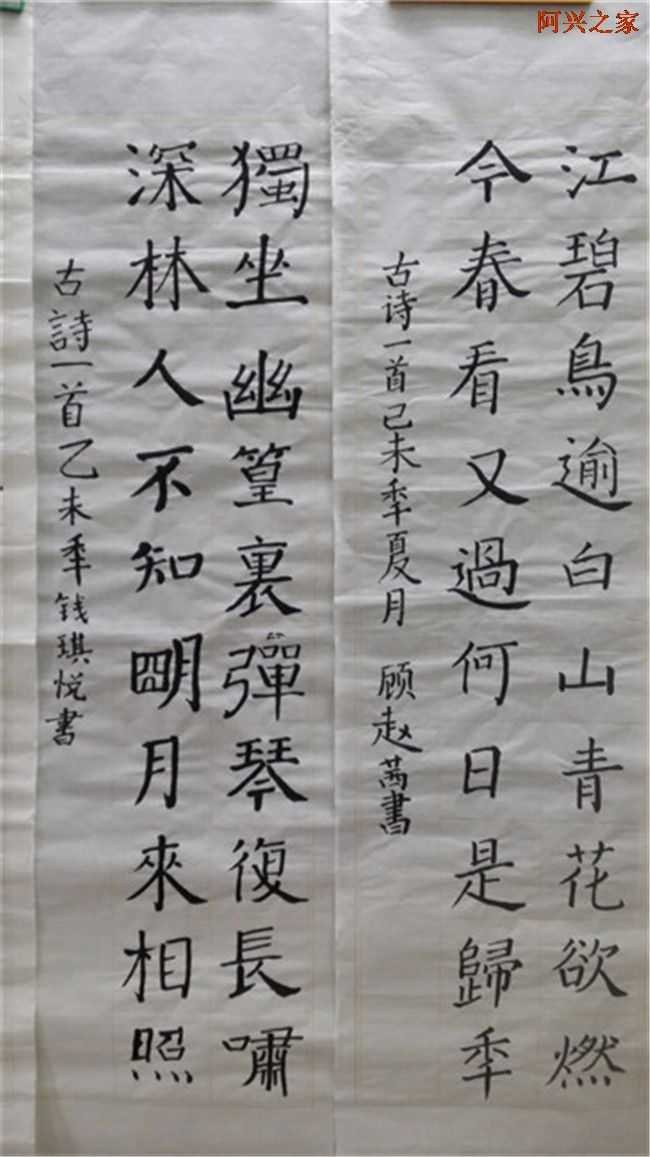 阿兴之家
江碧鳥逾白山青花欲燃
今春看又過何日是歸秊
古诗一首己未秊夏月 顾赵茜書
獨坐幽篁裏彈琴復長嘯
深林人不知朙月來相照
古詩一首乙未秊钱琪悦書